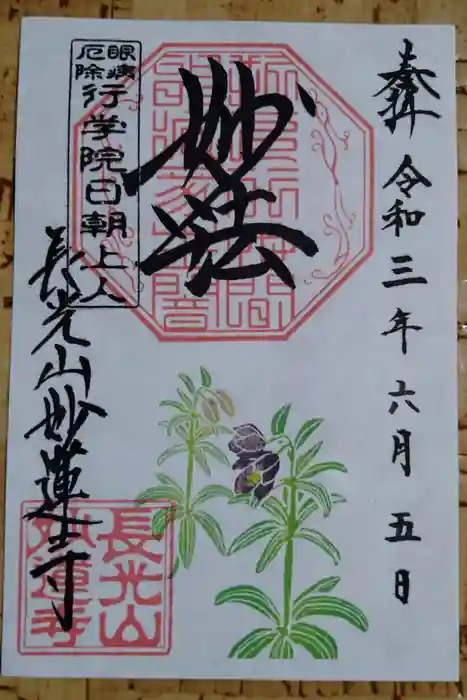 奉拝 令和三年六月五日
妙法
眼病
厄除
行学院日朝上人
長光山妙蓮寺
長光山
妙蓮寺